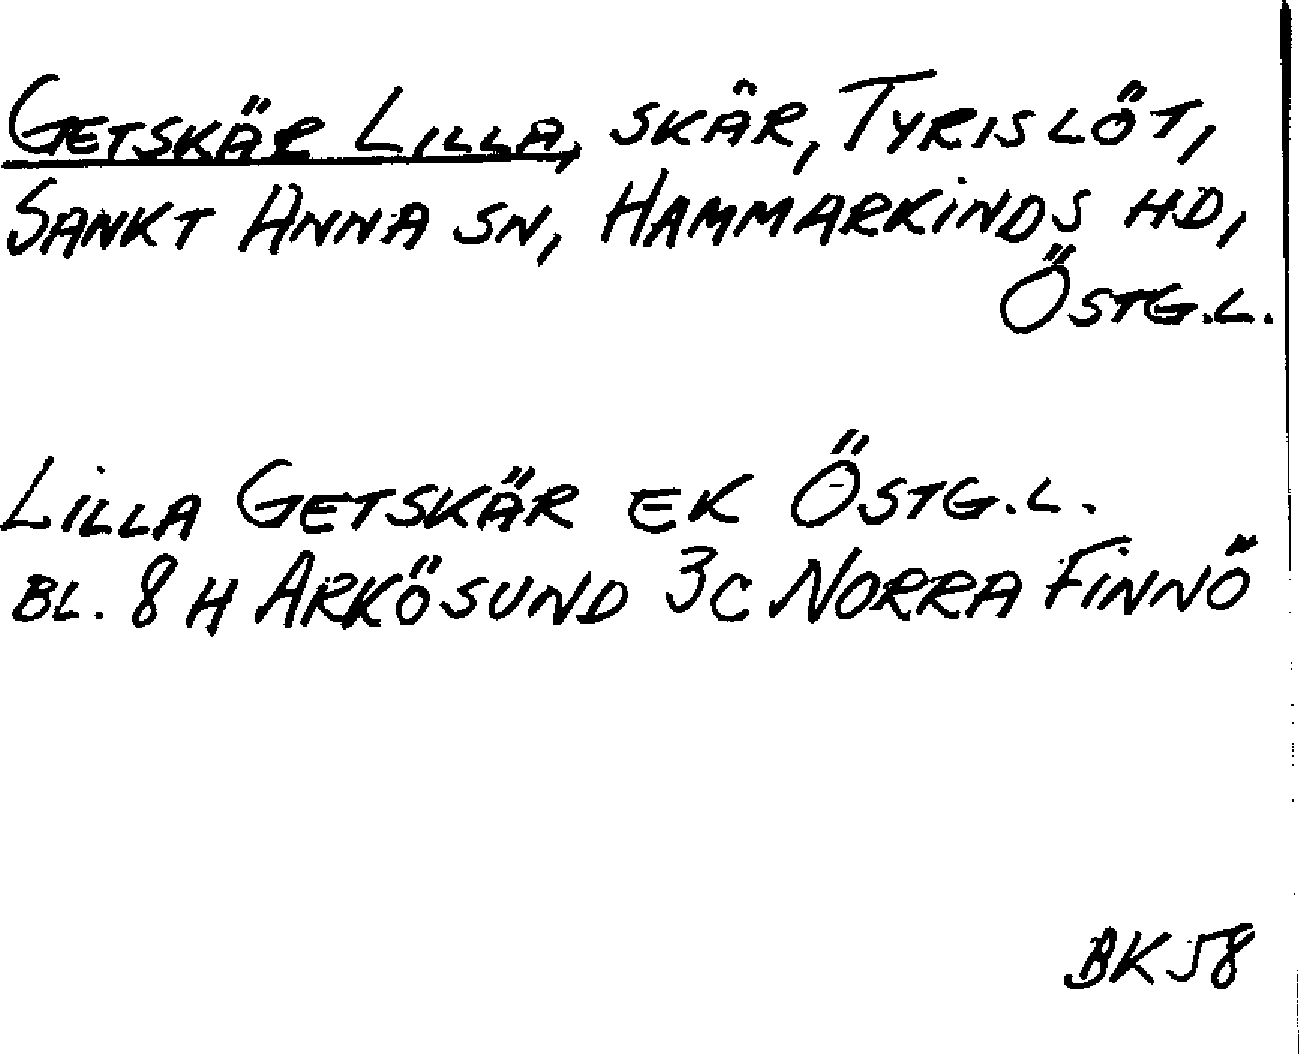 GETSKÄR LILLA, SKÄR, TYRISLÖT,
SANKT ANNA SN, HAMMARKINDS HD,
ÖSTG.L.
LILLA GETSKÄR EK ÖSTG.L.
BL. 8 H ARKÖSUND 3C NORRA FINNÖ
BK 58